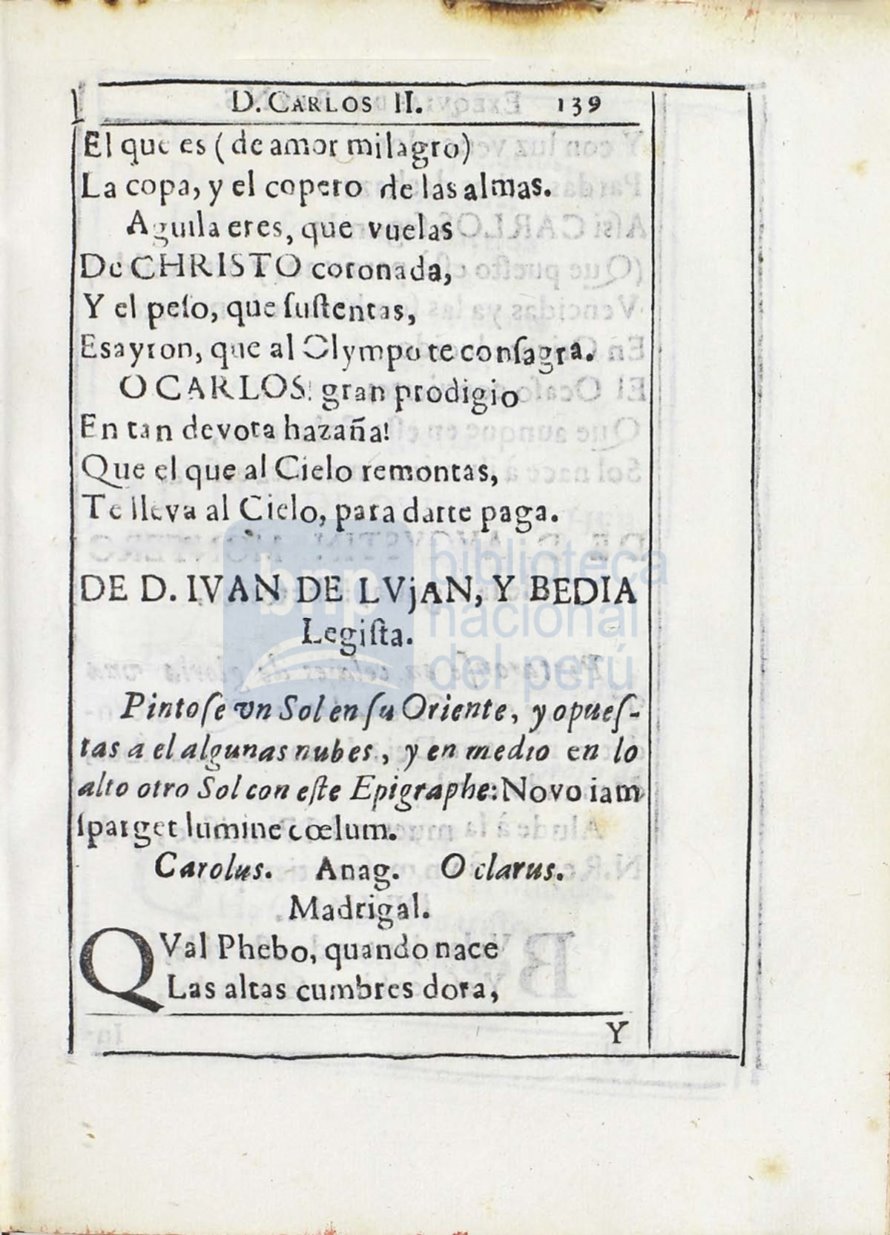 D. CARLOS II. 139
El que es (de amor milagro)
La copa, y el copero de las almas.
Aguila eres, que vuelas
De CHRISTO coronada,
Y el peso, que ſuſtentas,
Esayron, que al Olympo te conſagra.
O CARLOS! gran prodigio
En tan devota hazaña!
Que el que al Cielo remontas,
Te lleva al Cielo, para darte paga.
DE D. IVAN DE LVjAN, Y BEDIA
Legiſta.
Pintoſe vn Sol en ſu Oriente, y opueſ-
tas a el algunas nubes, y en medio en lo
alto otro Sol con eſte Epigraphe: Novo iam
ſparget lumine cœlum.
Carolus. Anag. O clarus.
Madrigal.
QVal Phebo, quando nace
Las altas cumbres dora,
Y
bnp biblioteca
nacional
del perú